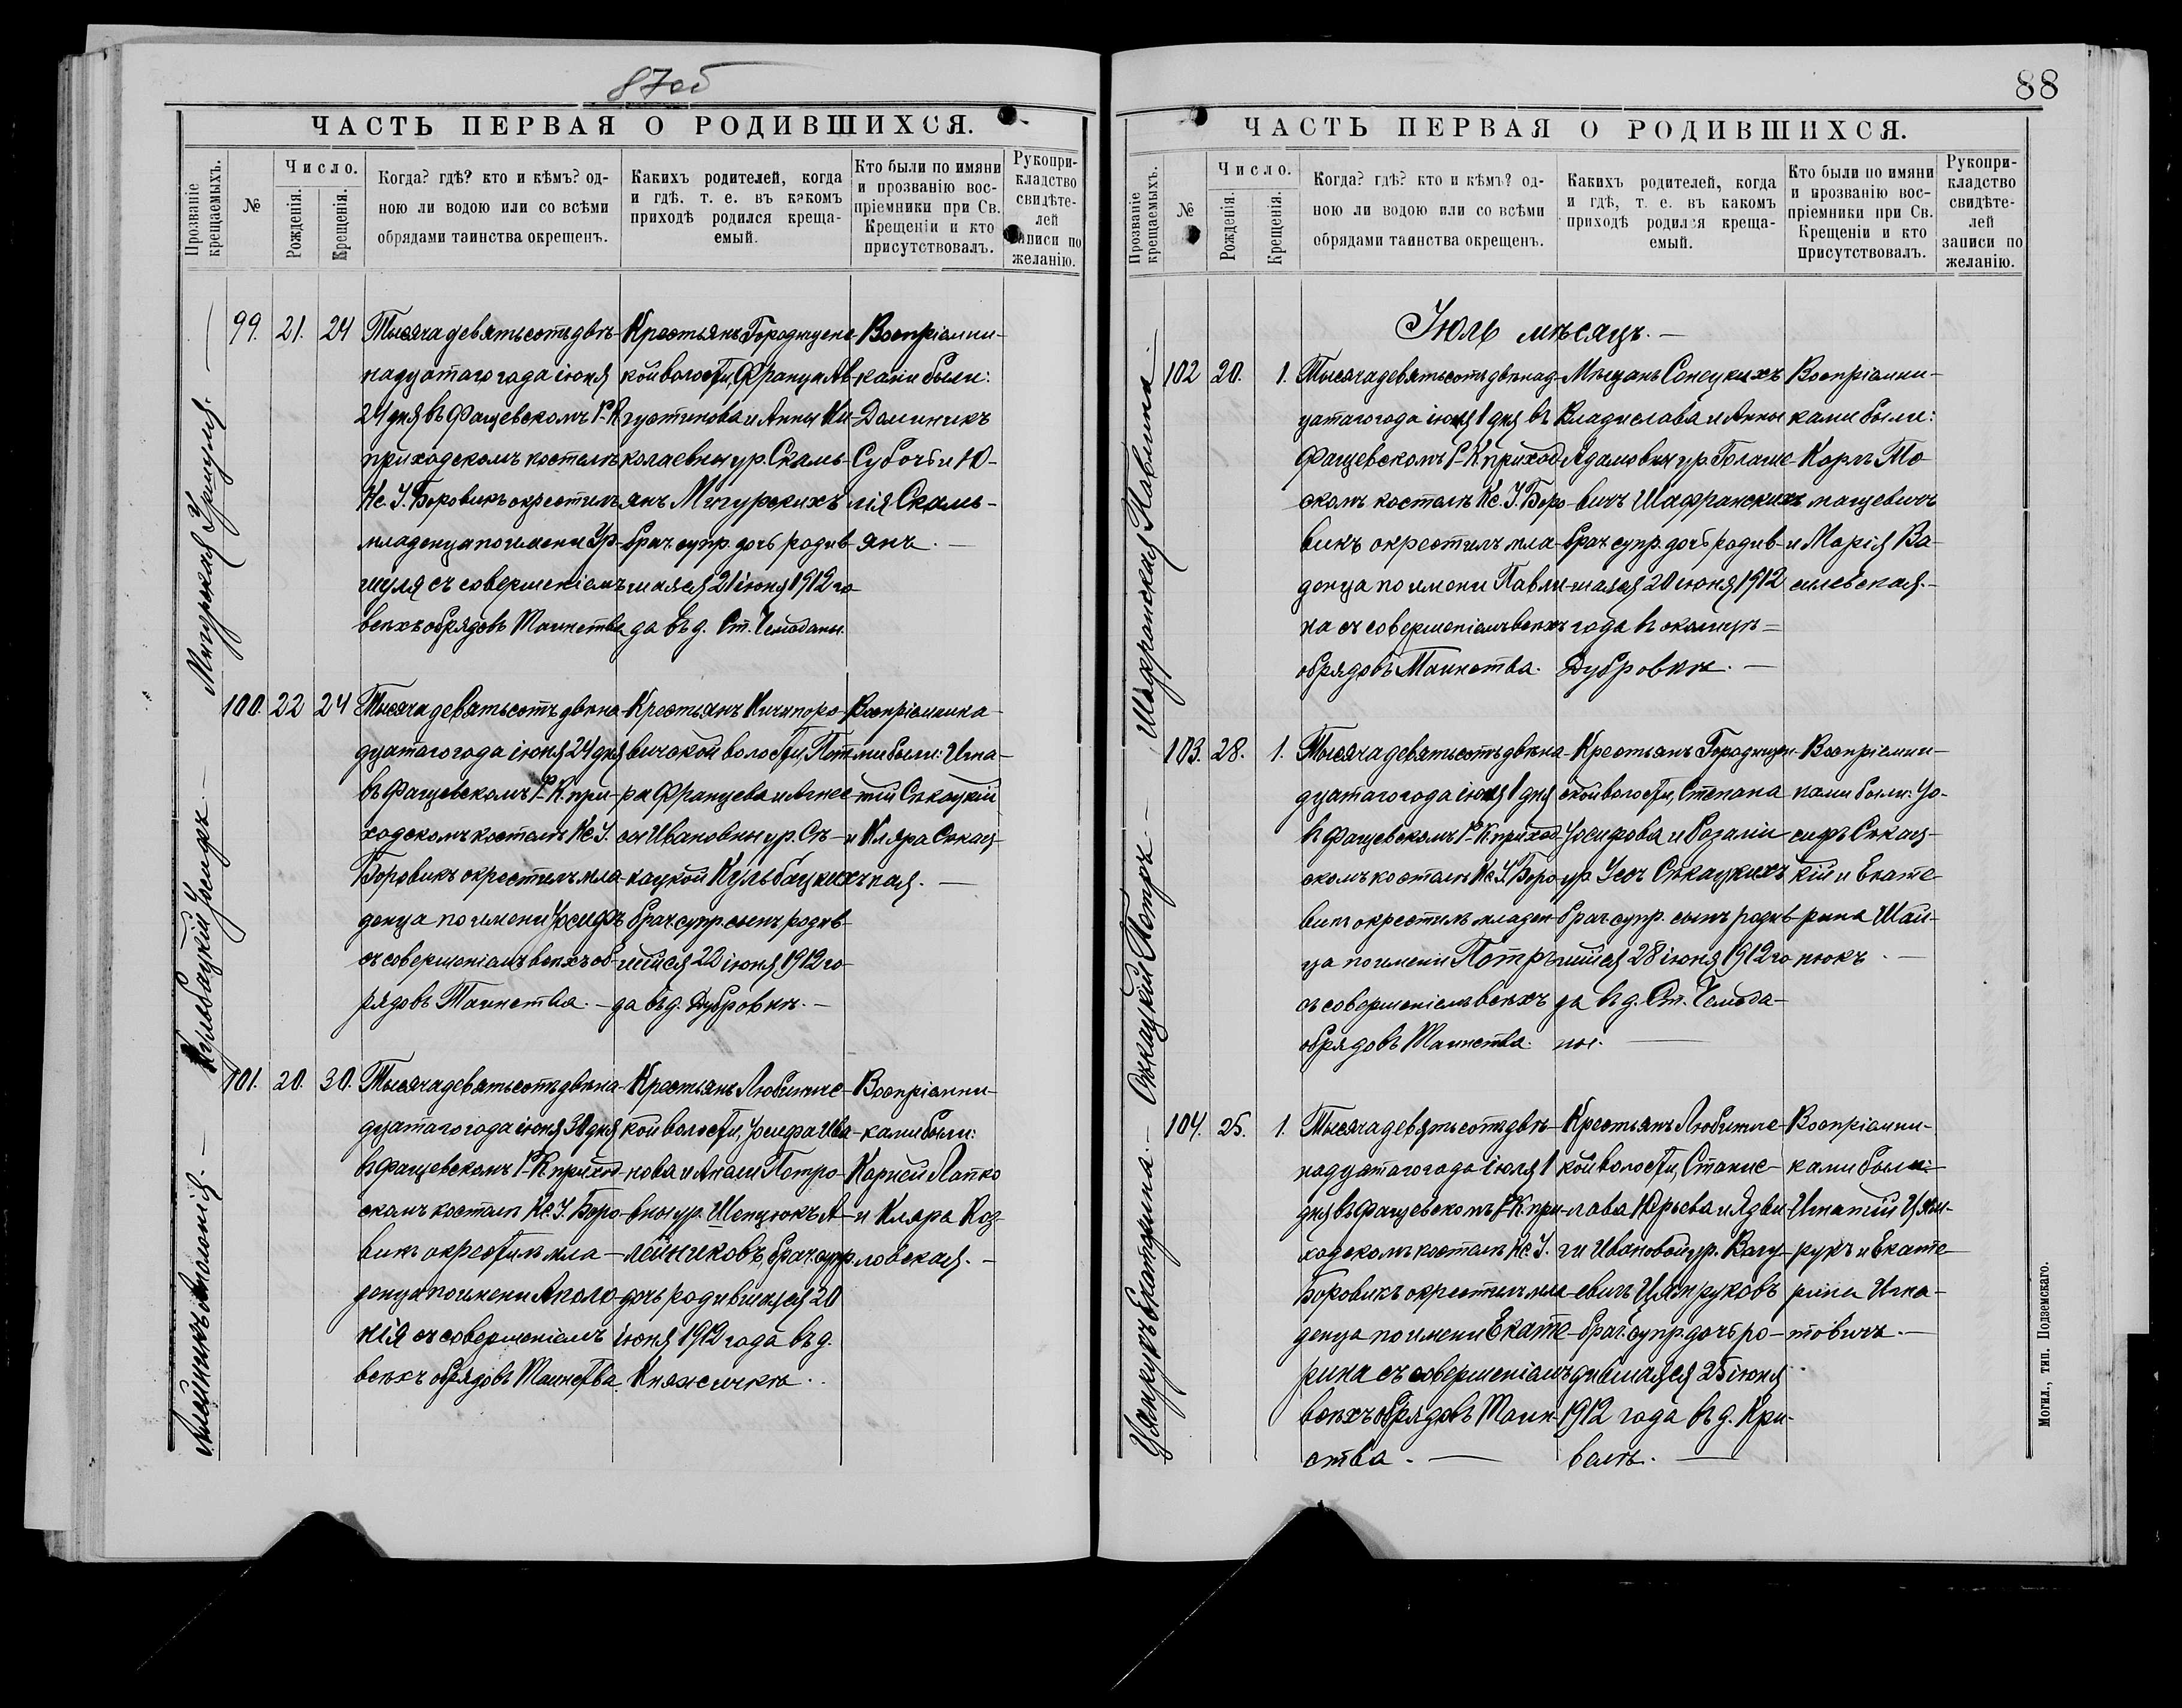 87об
ЧАСТЬ ПЕРВАЯ О РОДИВШИХСЯ.
Прозваніе крещаемыхъ.
№
Число.
Рожденія.
Крещенія.
Когда? гдѣ? кто и кѣмъ? од-
ною ли водою или со всѣми
обрядами таинства окрещенъ.
Какихъ родителей, когда
и гдѣ. т. е. въ какомъ
приходѣ родился креща-
емый.
Кто были по имяни
и прозванію вос-
пріемники при Св.
Крещеніи и кто
присутствовалъ.
Рукопри-
кладство
свидѣте-
лей
записи по
желанію.
Мигурская Уршуля.
99. 21. 24
Тысяча девятьсотъ двѣ-
надцатаго года іюня
24 дня въ Фащевскомъ Р-К
приходскомъ костелѣ
Кс. І. Боровикъ окрестилъ
младенца по имени Ур-
шуля съ совершеніемъ
всѣхъ обрядовъ Таинства
Крестьянъ Городищенс-
кой волости, Франца Ав-
густинова и Анны Ни-
колаевны ур. Скаль-
янъ Мигурскихъ
брач. супр. дочь родив-
шаяся 21 іюня 1912 го-
да въ д. Ст. Чемоданы.
Воспріемни-
ками были:
Доминикъ
Суботь и Ю-
лія Скаль-
янъ.
Кульбацкій Іосифъ
100. 22 24
Тысяча девятьсотъ двѣна-
дцатаго года іюня 24 дня
въ Фащевскомъ Р-К. при-
ходскомъ костелѣ Кс. І.
Боровикъ окрестилъ мла-
денца по имени Іосифъ
съ совершеніемъ всѣхъ об-
рядовъ Таинства.
Крестьянъ Ничипоро-
вичской волости, Пет-
ра Францева и Агне-
сы Ивановны ур. Сѣ-
кацкой Кульбацкихъ
брач. супр. сынъ родив-
шійся 22 іюня 1912 го-
да въ д. Дубровкѣ.
Воспріемника-
ми были: Игна-
тій Сѣкацкій
и Кляра Сѣкац-
кая.
Алейникъ Аполонія.
101. 20. 30.
Тысяча девятьсотъ двѣна-
дцатаго года іюня 30 дня
въ Фащевскомъ Р-К приход-
скомъ костелѣ Кс. І. Боро-
викъ окрестилъ мла-
денца по имени Аполо-
нія съ совершеніемъ
всѣхъ обрядовъ Таинства.
Крестьянъ Любинис-
кой волости, Іосифа Ива-
нова и Анели Петро-
вны ур. Шепцюкъ А-
лейниковъ, брач. супр.
дочь родившаяся 20
іюня 1912 года въ д.
Княжичкѣ.
Воспріемни-
ками были:
Карней Лапко
и Кляра Коз-
ловская.
88
ЧАСТЬ ПЕРВАЯ О РОДИВШИХСЯ.
Прозваніе крещаемыхъ.
№
Число.
Рожденія.
Крещенія.
Когда? гдѣ? кто и кѣмъ? од-
ною ли водою или со всѣми
обрядами таинства окрещенъ.
Какихъ родителей, когда
и гдѣ, т. е. въ какомъ
приходѣ родился креща-
емый.
Кто были по имяни
и прозванію вос-
пріемники при Св.
Крещеніи и кто
присутствовалъ.
Рукопри-
кладство
свидѣте-
лей
записи по
желанію.
Іюль мѣсяцъ.
Шафранская Павлина.
102 20. 1.
Тысяча девятьсотъ двѣнад-
цатаго года іюля 1 дня въ
Фащевскомъ Р-К приход-
скомъ костелѣ Кс. І. Боро-
викъ окрестилъ мла-
денца по имени Павли-
на съ совершеніемъ всѣхъ
обрядовъ Таинства.
Мѣщанъ Сенецкихъ
Владислава и Анны
Адамовны ур. Бламе-
вичъ Шафранскихъ
брач. супр. дочь родив-
шаяся 20 іюня 1912
года въ околицѣ
Дубровкѣ.
Воспріемни-
ками были:
Карлъ То-
мащевичъ
и Марія Ва-
силевская.
Сѣкацкій Петръ
103. 28. 1.
Тысяча девятьсотъ двѣна-
дцатаго года іюля 1 дня
въ Фащевскомъ Р-К приход-
скомъ костелѣ Кс. І. Боро-
викъ окрестилъ младен-
ца по имени Петръ
съ совершеніемъ всѣхъ
обрядовъ Таинства.
Крестьянъ Городищен-
ской волости, Степана
Іосифова и Розаліи
ур. Усъ Сѣкацкихъ
брач. супр. сынъ родив-
шійся 28 іюня 1912 го
да въ д. Ст. Чемода-
ны.
Воспріемни-
ками были: Іо-
сифъ Сѣкац-
кій и Екате-
рина Шай-
нюкъ.
Цямрукъ Екатерина.
104. 25. 1.
Тысяча девятьсотъ двѣ-
надцатаго года іюля 1
дня въ Фащевскомъ Р-К при-
ходскомъ костелѣ Кс. І.
Боровикъ окрестилъ мла-
денца по имени Екате-
рина съ совершеніемъ
всѣхъ обрядовъ Таин-
ства.
Крестьянъ Любинис-
кой волости, Станис-
лава Юрьева и Ядви-
ги Ивановой ур. Вагу-
евичъ Цямруковъ
брач. супр. дочь ро-
дившаяся 25 іюня
1912 года въ д. Кри-
вель.
Воспріемни-
ками были:
Игнатій Цям-
рукъ и Екате-
рина Игна-
товичъ.
Могил., тип. Подземскаго.